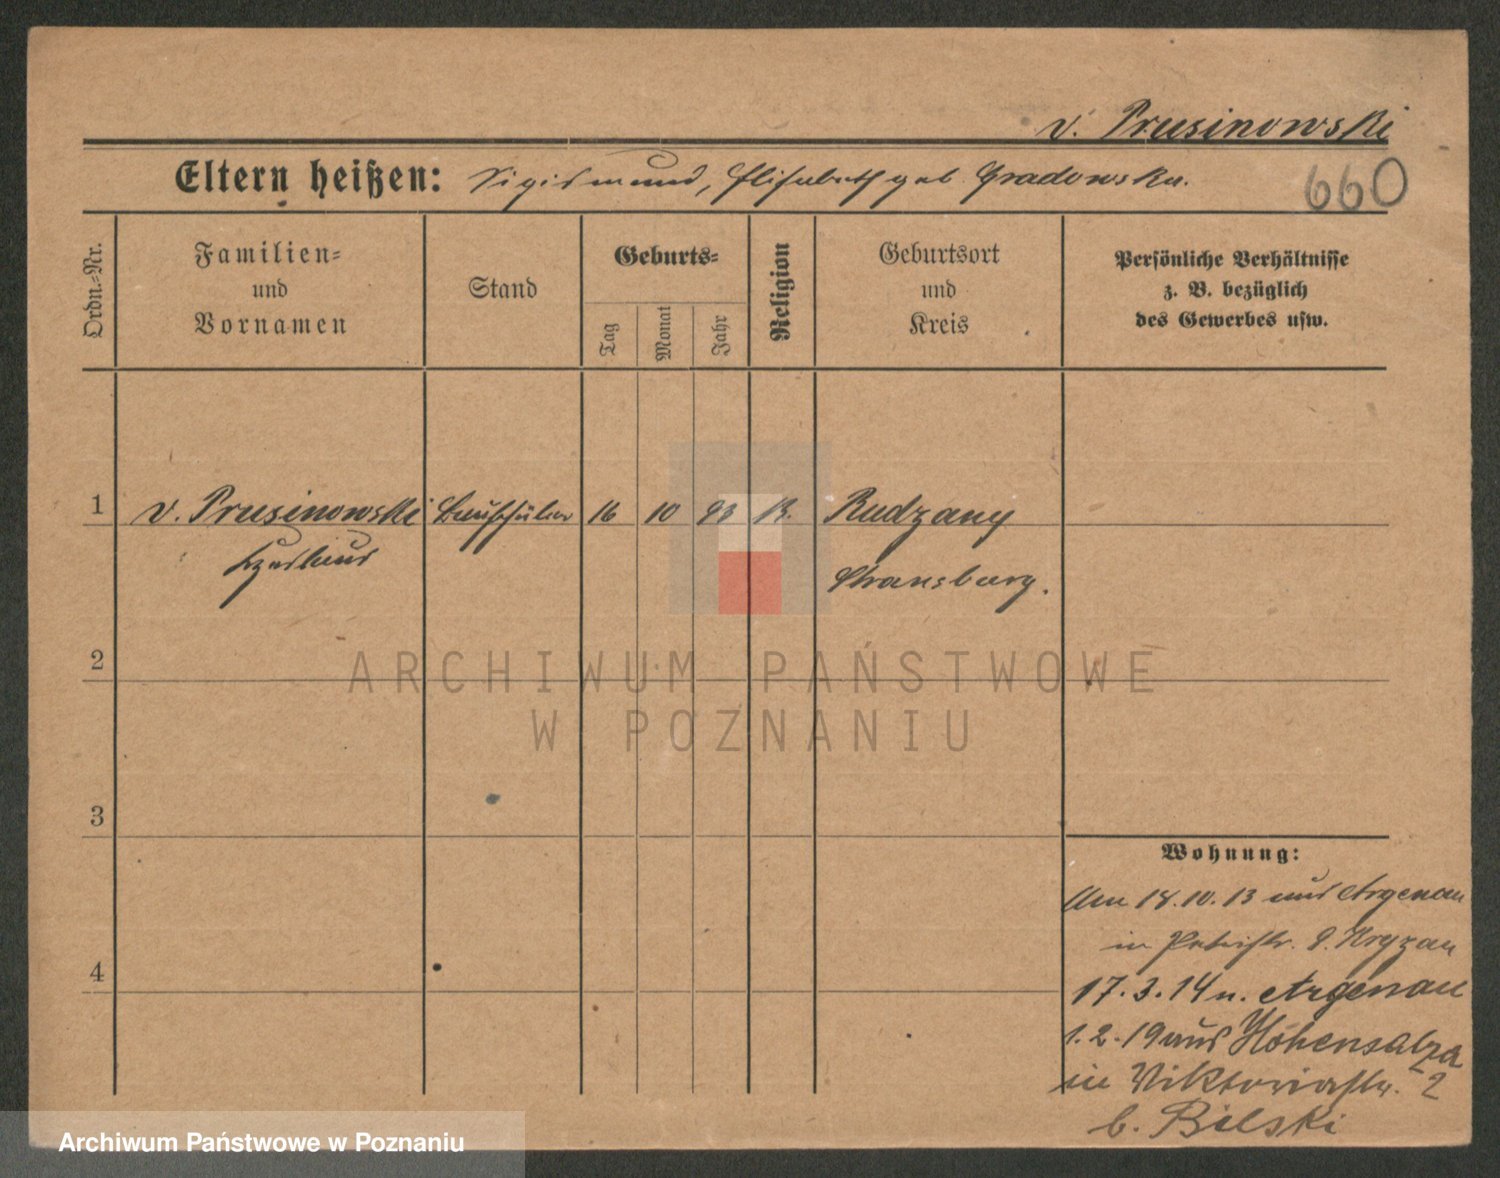 v. Prusinowski
Eltern heißen: Sigismund, Elisabeth geb. Gradowska.
660
Ordn.-Nr.
Familien-
und
Vornamen
Stand
Geburts-
Tag
Monat
Jahr
Religion
Geburtsort
und
Kreis
Persönliche Verhältnisse
z. B. bezüglich
des Gewerbes usw.
1 v. Prusinowski Bauschüler 16 10 93 Rudzany
Strausburg.
2
3
4
Wohnung:
Am 18.10.13 aus Argenau
in Petristr. 9. Kryzan
17.3.14 n. Argenau
1.2.19 aus Hohensalza
in Viktoriastr. 2
b. Bilski
ARCHIWUM PAŃSTWOWE
W POZNANIU
Archiwum Państwowe w Poznaniu